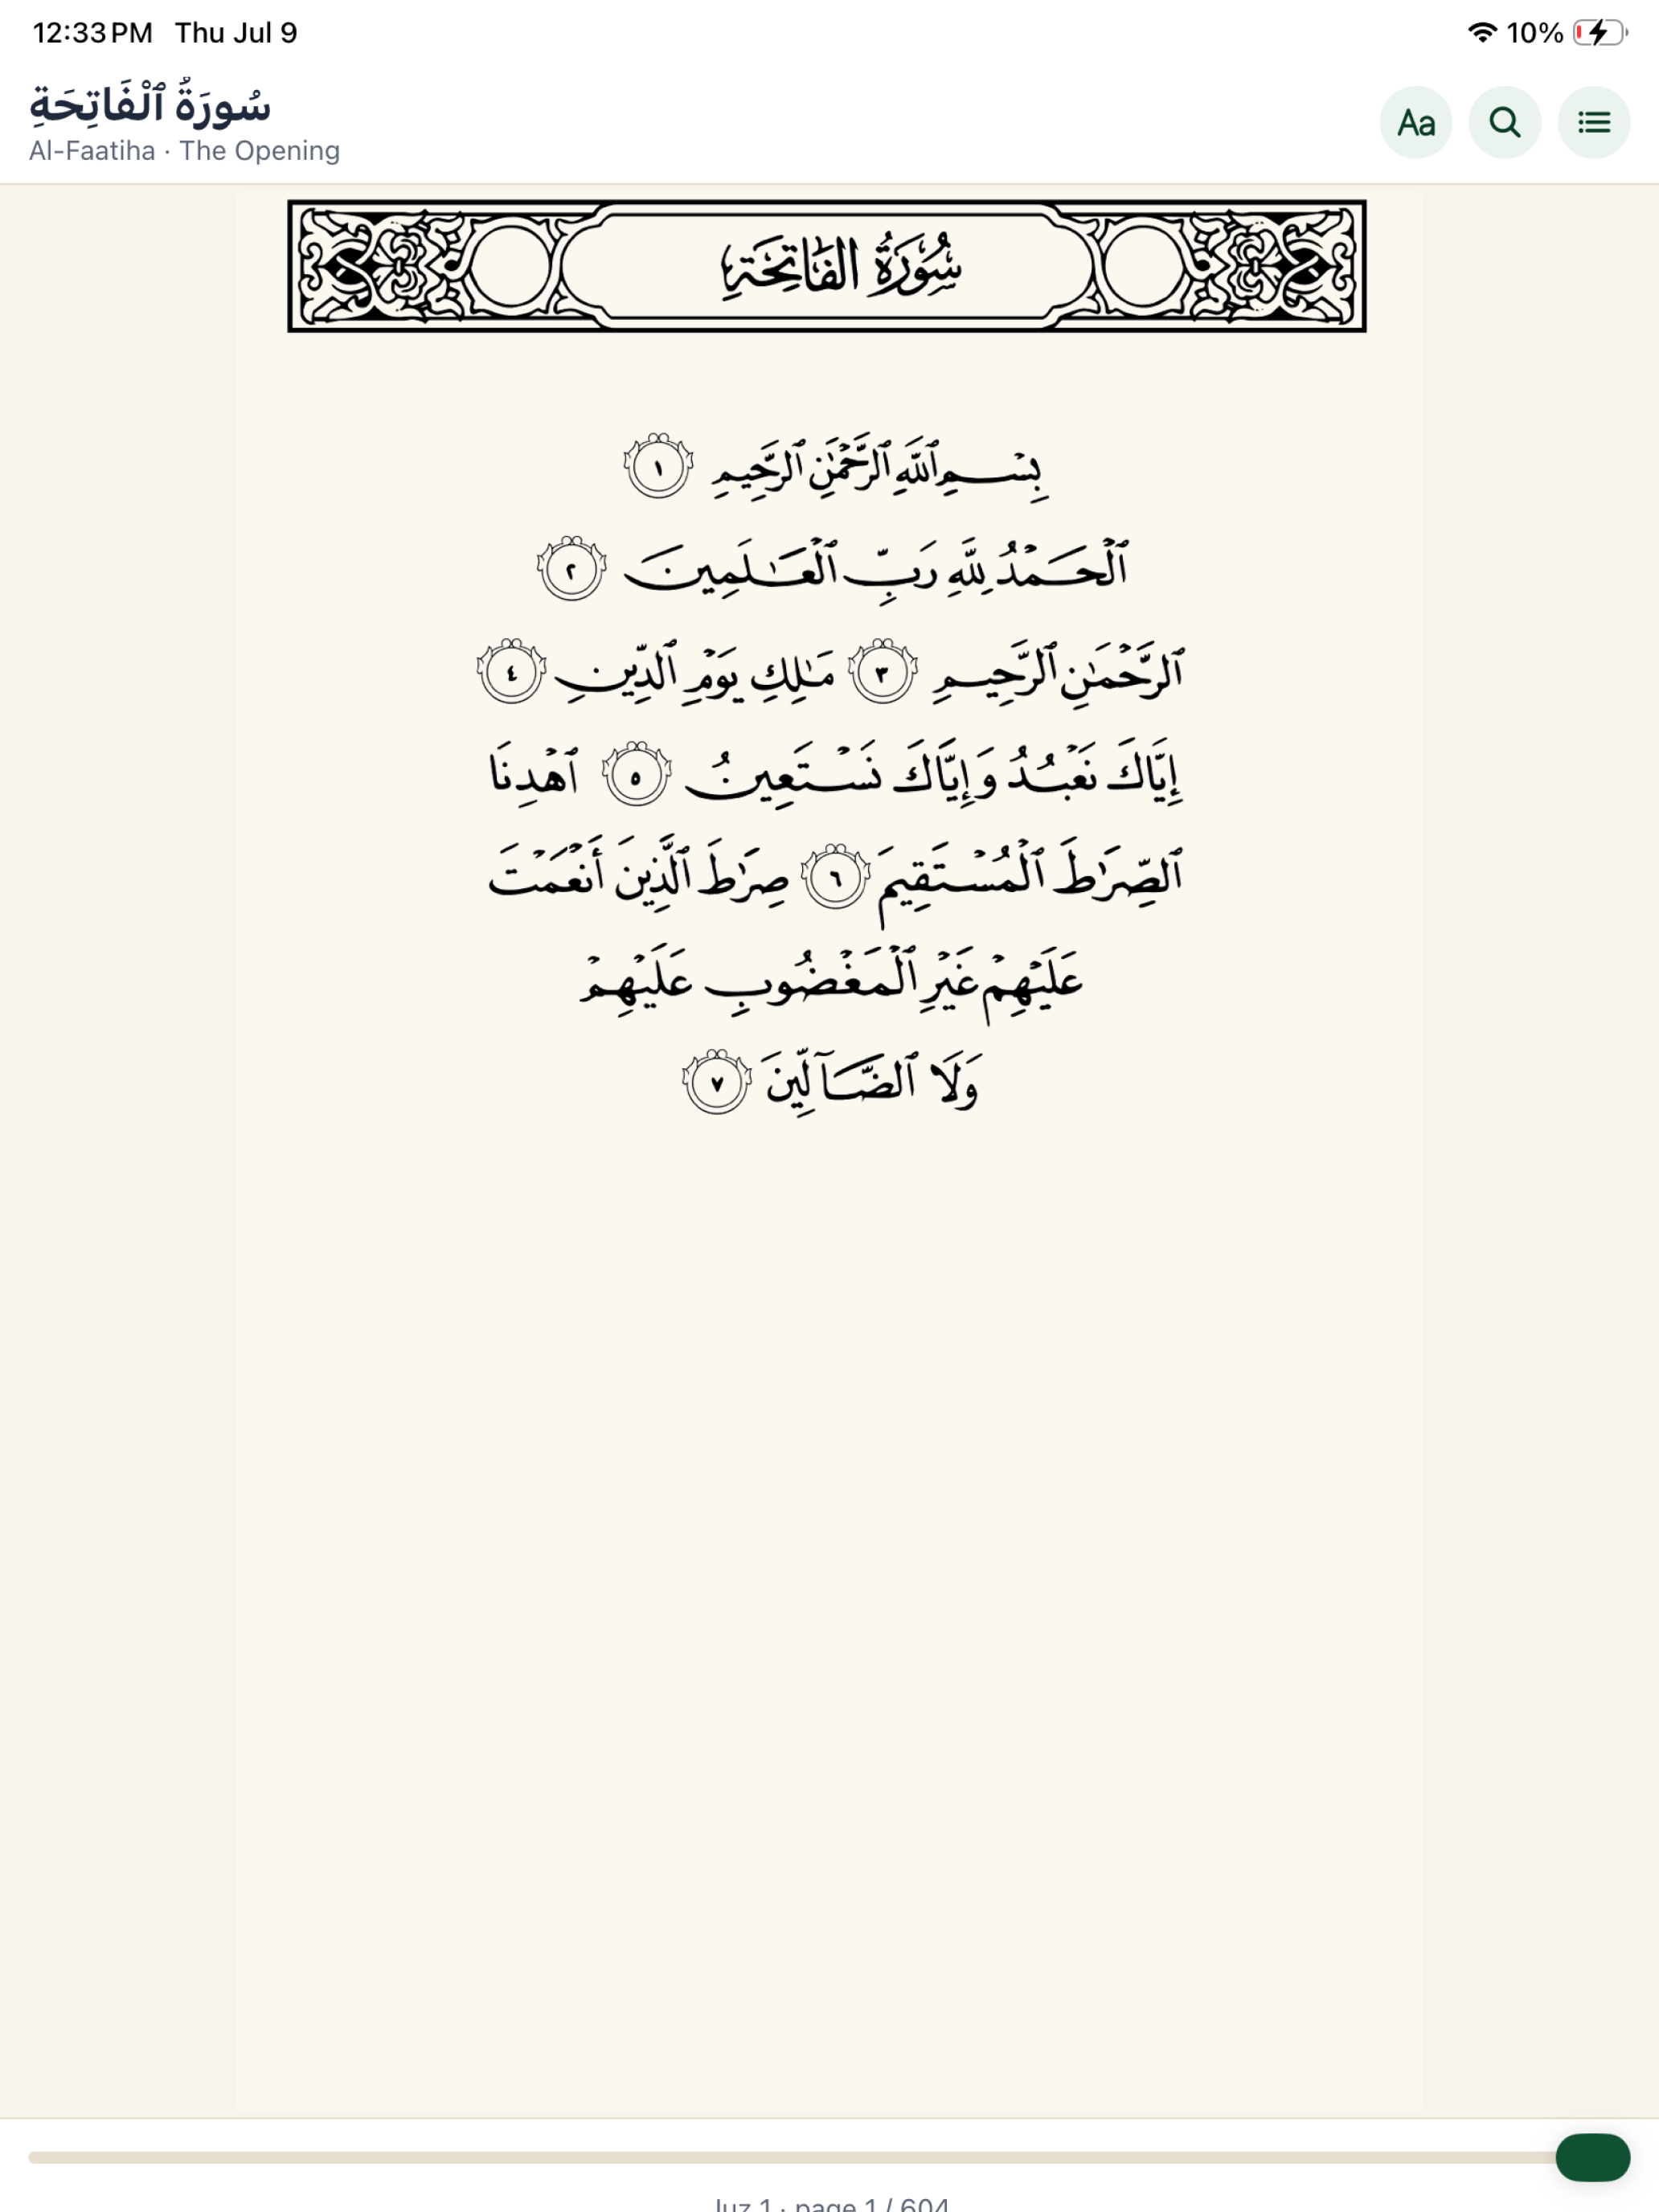 12:33 PM Thu Jul 9
10%
سُورَةُ ٱلْفَاتِحَةِ
Al-Faatiha · The Opening
Aa
سُورَةُ الفَاتِحَةِ
بِسْمِ ٱللَّهِ ٱلرَّحْمَٰنِ ٱلرَّحِيمِ ١
ٱلْحَمْدُ لِلَّهِ رَبِّ ٱلْعَٰلَمِينَ ٢
ٱلرَّحْمَٰنِ ٱلرَّحِيمِ ٣ مَٰلِكِ يَوْمِ ٱلدِّينِ ٤
إِيَّاكَ نَعْبُدُ وَإِيَّاكَ نَسْتَعِينُ ٥ ٱهْدِنَا
ٱلصِّرَٰطَ ٱلْمُسْتَقِيمَ ٦ صِرَٰطَ ٱلَّذِينَ أَنْعَمْتَ
عَلَيْهِمْ غَيْرِ ٱلْمَغْضُوبِ عَلَيْهِمْ
وَلَا ٱلضَّآلِّينَ ٧
Juz 1 · page 1 / 604